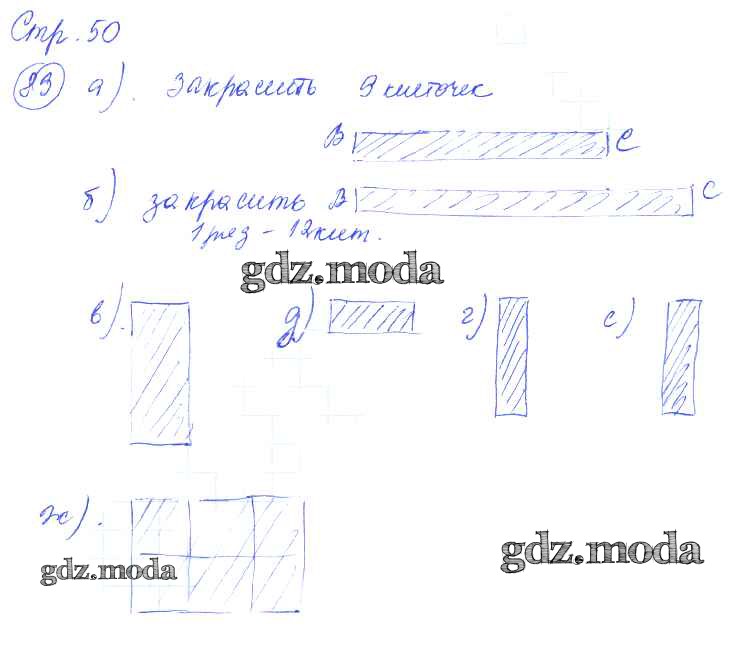 Стр. 50
83 а). Закрасить 9 клеточек
В С
б) закрасить В С
1 рез - 12 клет.
gdz.moda
в). д) г) е)
ж).
gdz.moda
gdz.moda